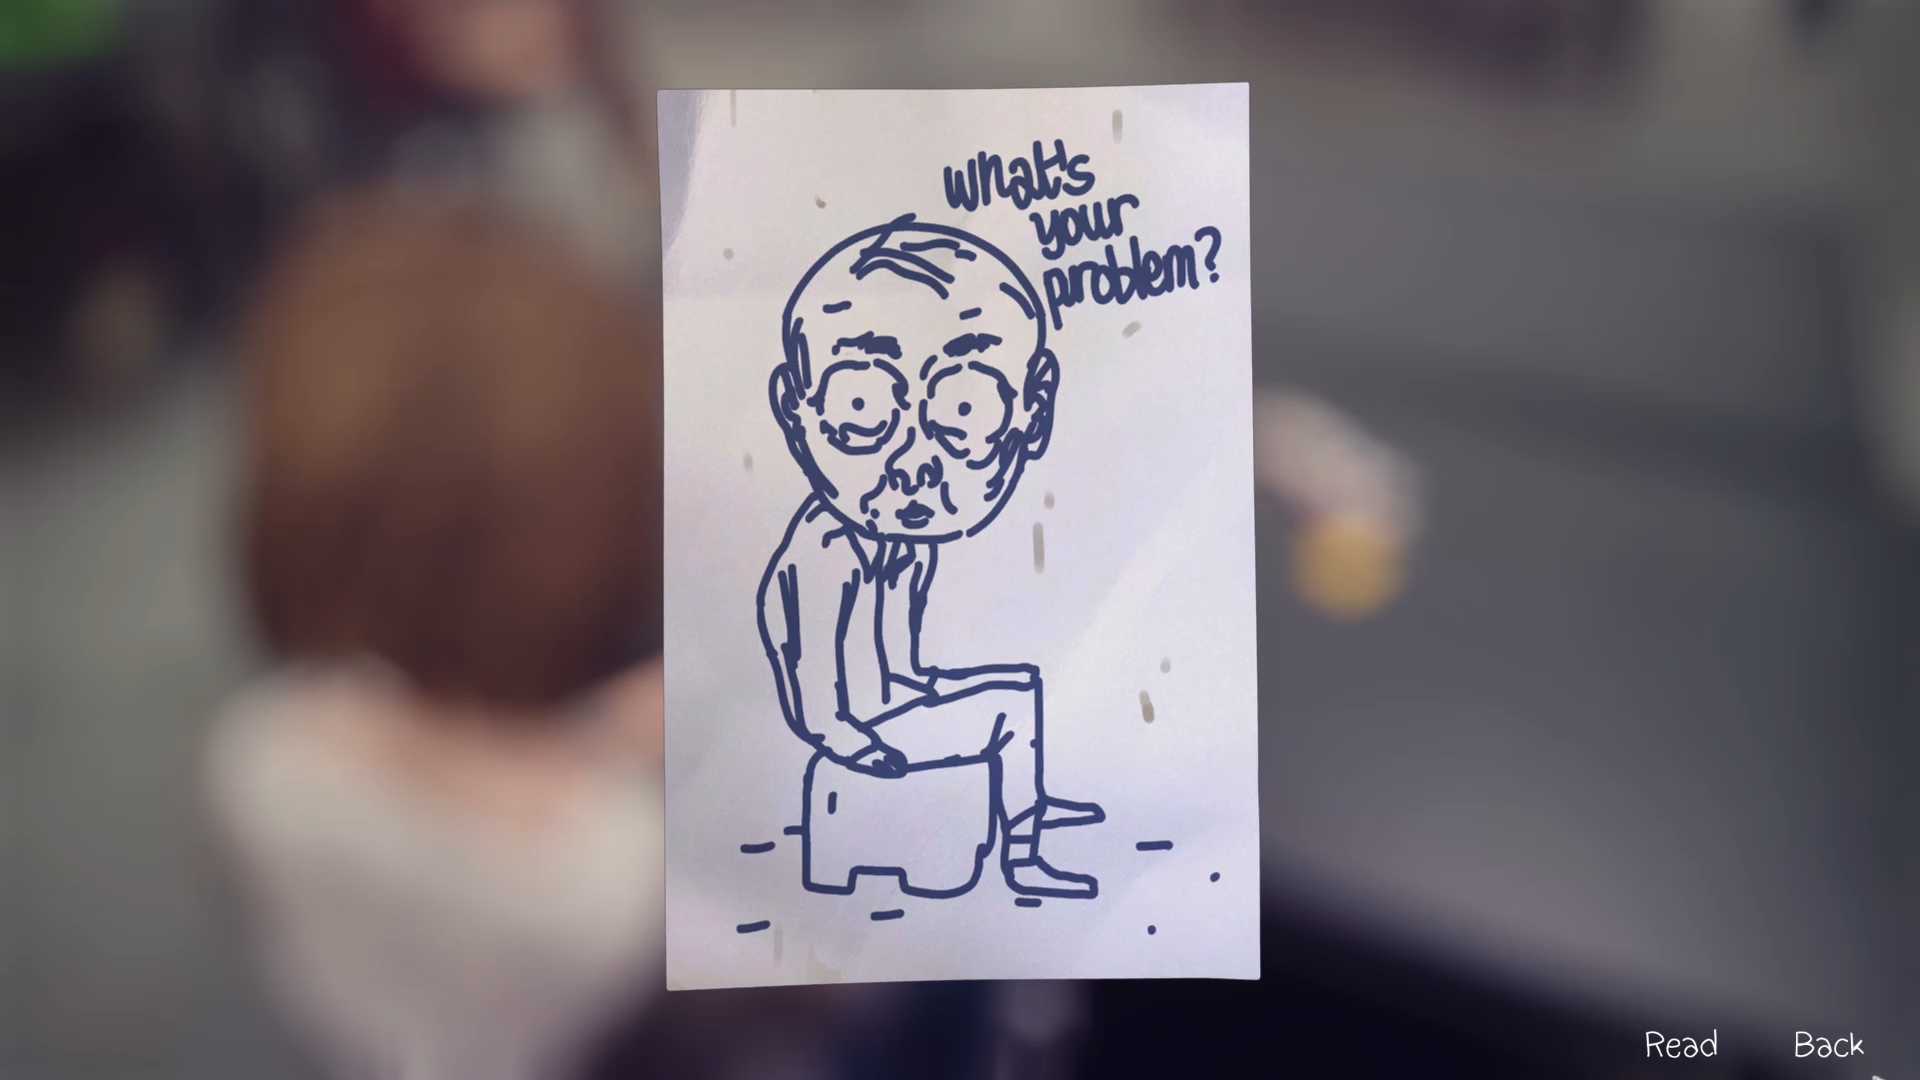 what's
your
problem?
Read Back